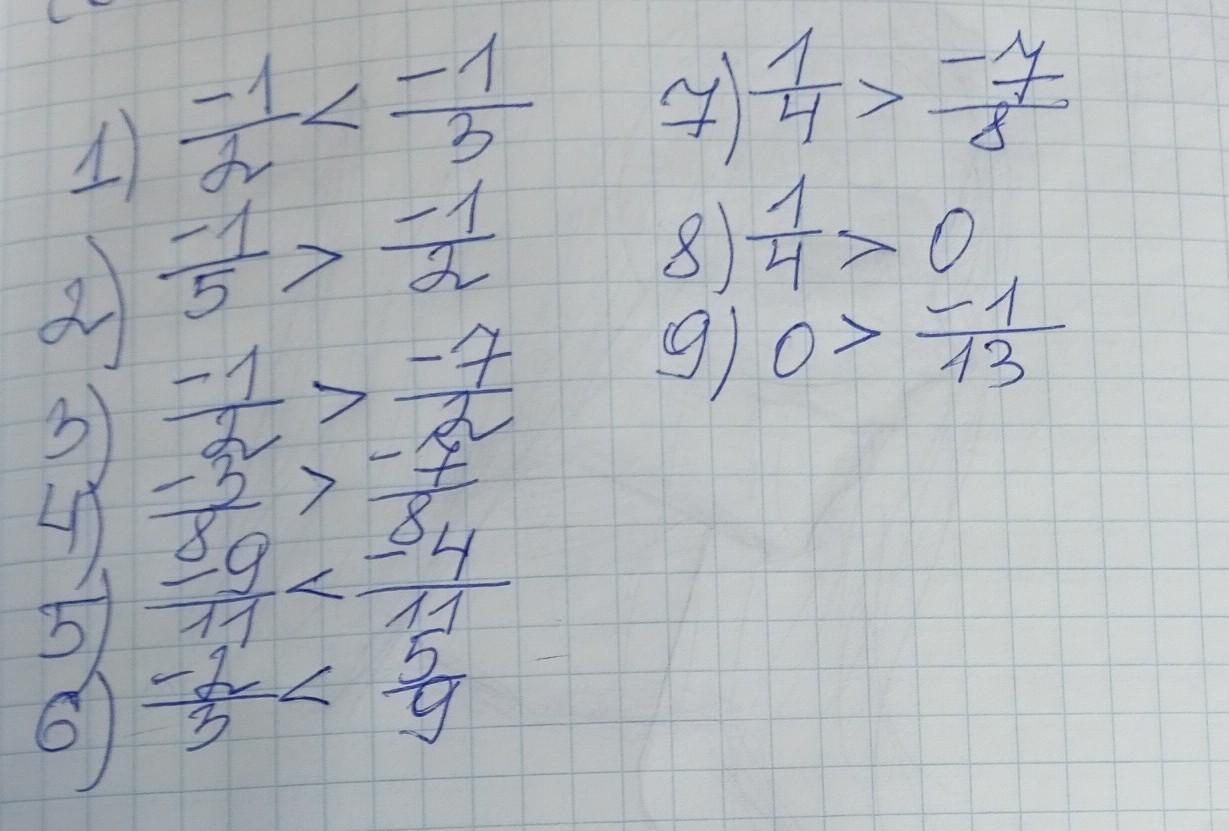 1) -1/2 < -1/3
2) -1/5 > -1/2
3) -1/2 > -7/2
4) -3/8 > -7/8
5) -9/11 < -4/11
6) -2/3 < 5/9
7) 1/4 > -7/8
8) 1/4 > 0
9) 0 > -1/13